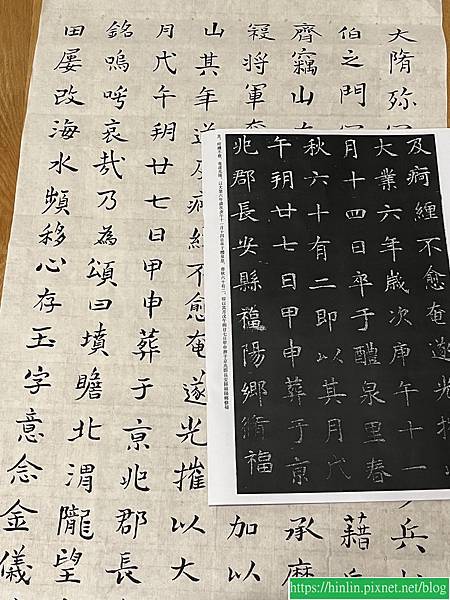 大隋殄
兵
伯之門
藉
齊竊山
承麾
寇將軍
加以
山其年遘及痾纏不愈奄遂光摧以大
月戊午朔廿七日甲申葬于京兆郡長
銘嗚呼哀哉乃為頌曰墳瞻北渭隴望
田屢改海水頻移心存玉字意念金儀
及痾纏不愈奄遂光摧
大業六年歲次庚午十一
月十四日卒于醴泉里春
秋六十有二即以其月戊
午朔廿七日甲申葬于京
兆郡長安縣福陽鄉脩福
https://hinlin.pixnet.net/blog